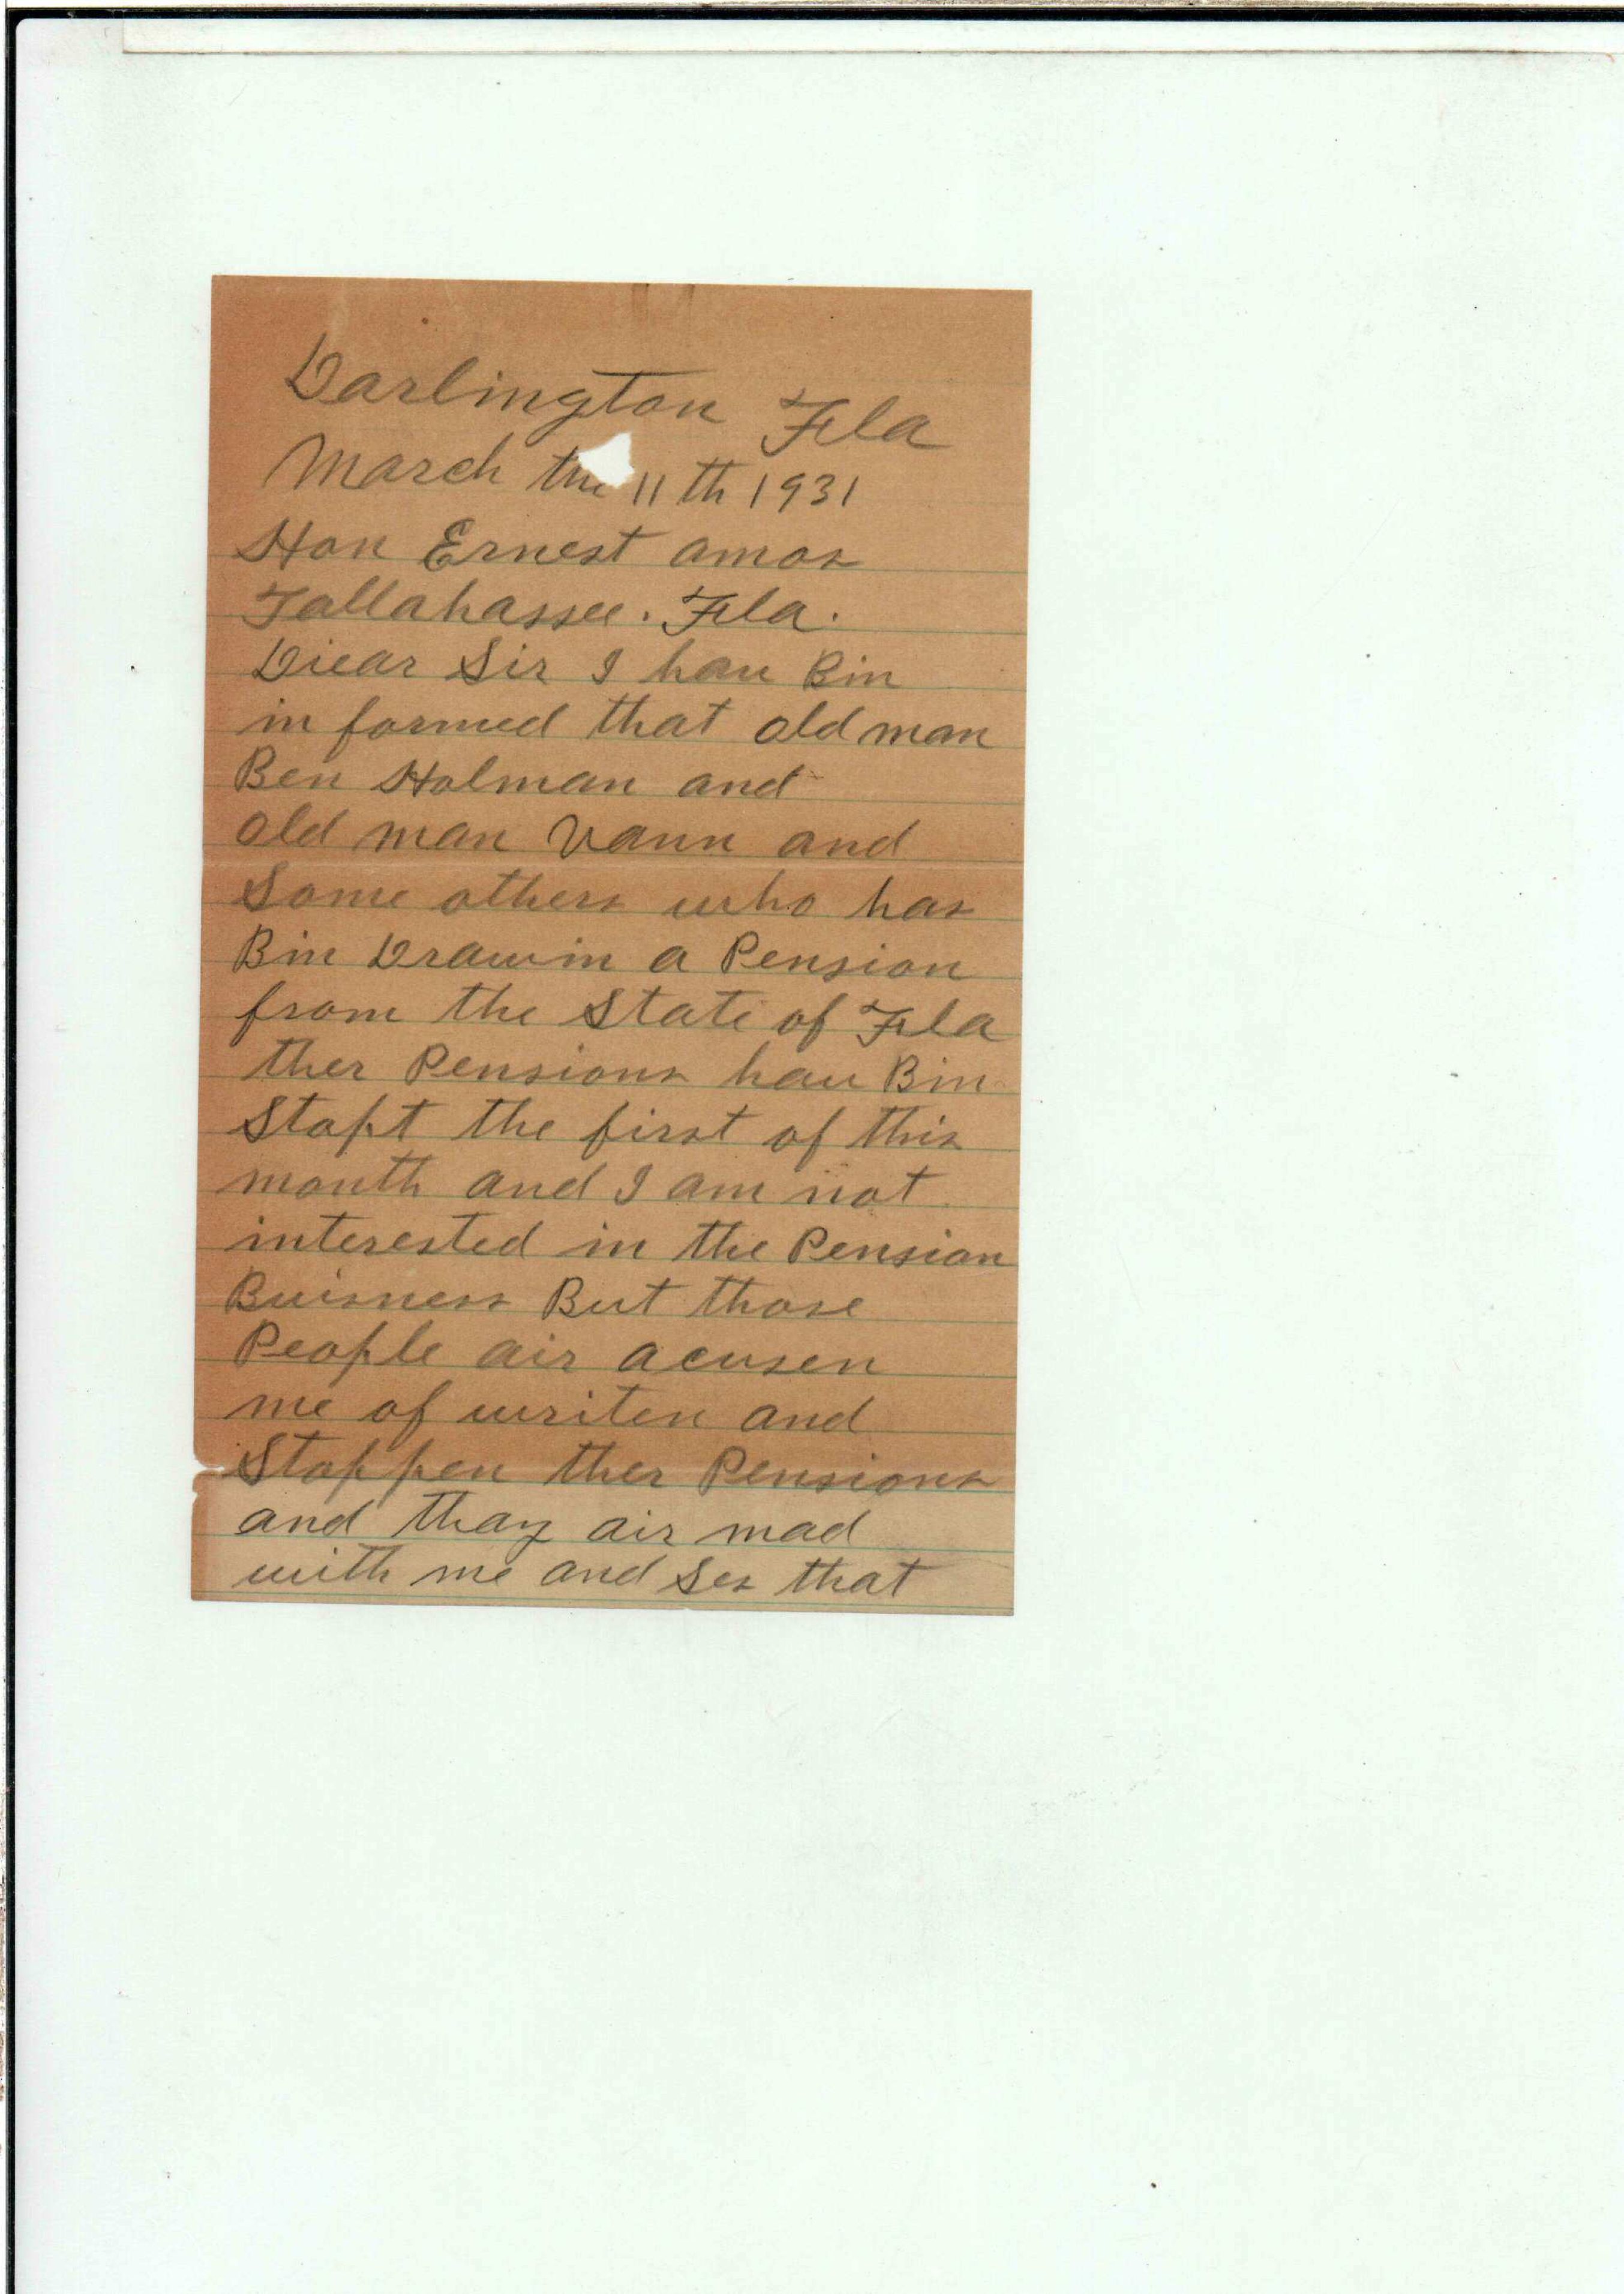 Darlington Fla
March the 11th 1931
Hon Ernest amos
Tallahassee. Fla.
Diear Sir I hav Bin
in formed that old man
Ben Holman and
old man Vann and
Some others who has
Bin Drawin a Pension
from the State of Fla
ther Pensions hav Bin
Stopt the first of this
month and I am not
interested in the Pension
Buisness But those
People air acusen
me of writen and
Stoppen ther Pensions
and thay air mad
with me and Ses that